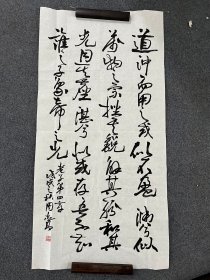 道冲而用之或似不盈渊兮似
萬物之宗挫其銳解其紛和其
光同其塵湛兮似或存吾不知
誰之子象帝之先
老子第四章